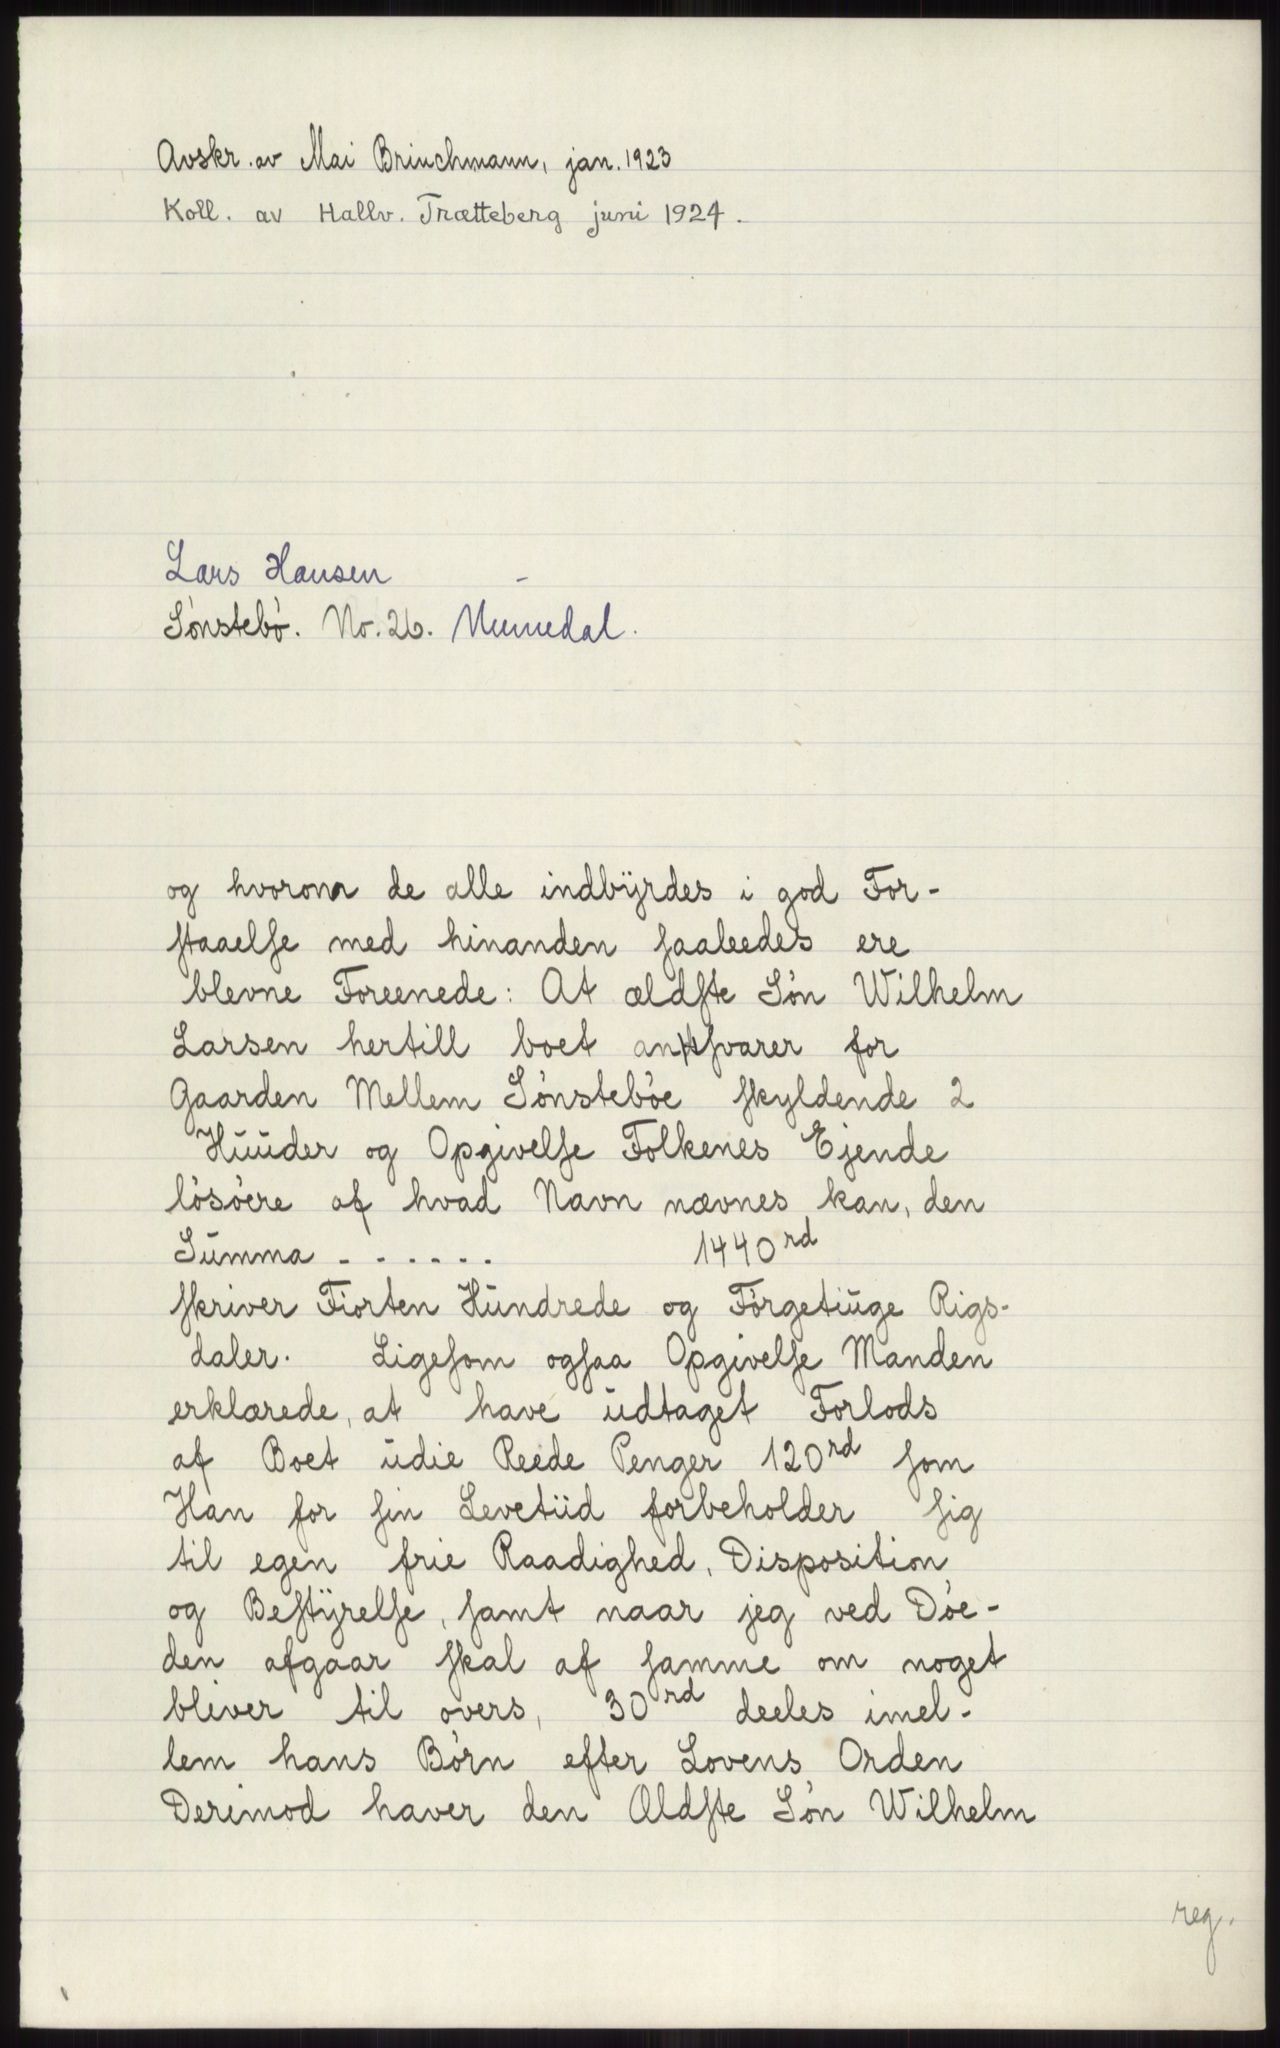 Avskr. av Mai Brinchmann, jan. 1923
Koll. av Hallv. Trætteberg juni 1924.
Lars Hansen -
Sönstebö. No. 26. Numedal.
og hvorom de alle indbÿrdes i god For-
staaelse med hinanden saaleedes ere
blevne Foreenede: At ældste Sön Wilhelm
Larsen hertill boet ansvarer for
Gaarden Mellem Sönsteböe skyldende 2
Huuder og Opgivelse Folkenes Ejende
lösöere af hvad Navn nævnes kan, den
Summa - - - - - - 1440 rd
skriver Fiorten Hundrede og Förgetiuge Rigs-
daler. Ligesom ogsaa Opgivelse Manden
erklærede, at have udtaget Forlods
af Boet udie Reede Penger 120 rd som
Han for sin Levetiid forbeholder sig
til egen frie Raadighed, Disposition
og Bestÿrelse, samt naar jeg ved Döe-
den afgaar skal af samme om noget
bliver til overs, 30 rd deeles imel-
lem hans Börn efter Lovens Orden
Derimod haver den Ældste Sön Wilhelm
reg.